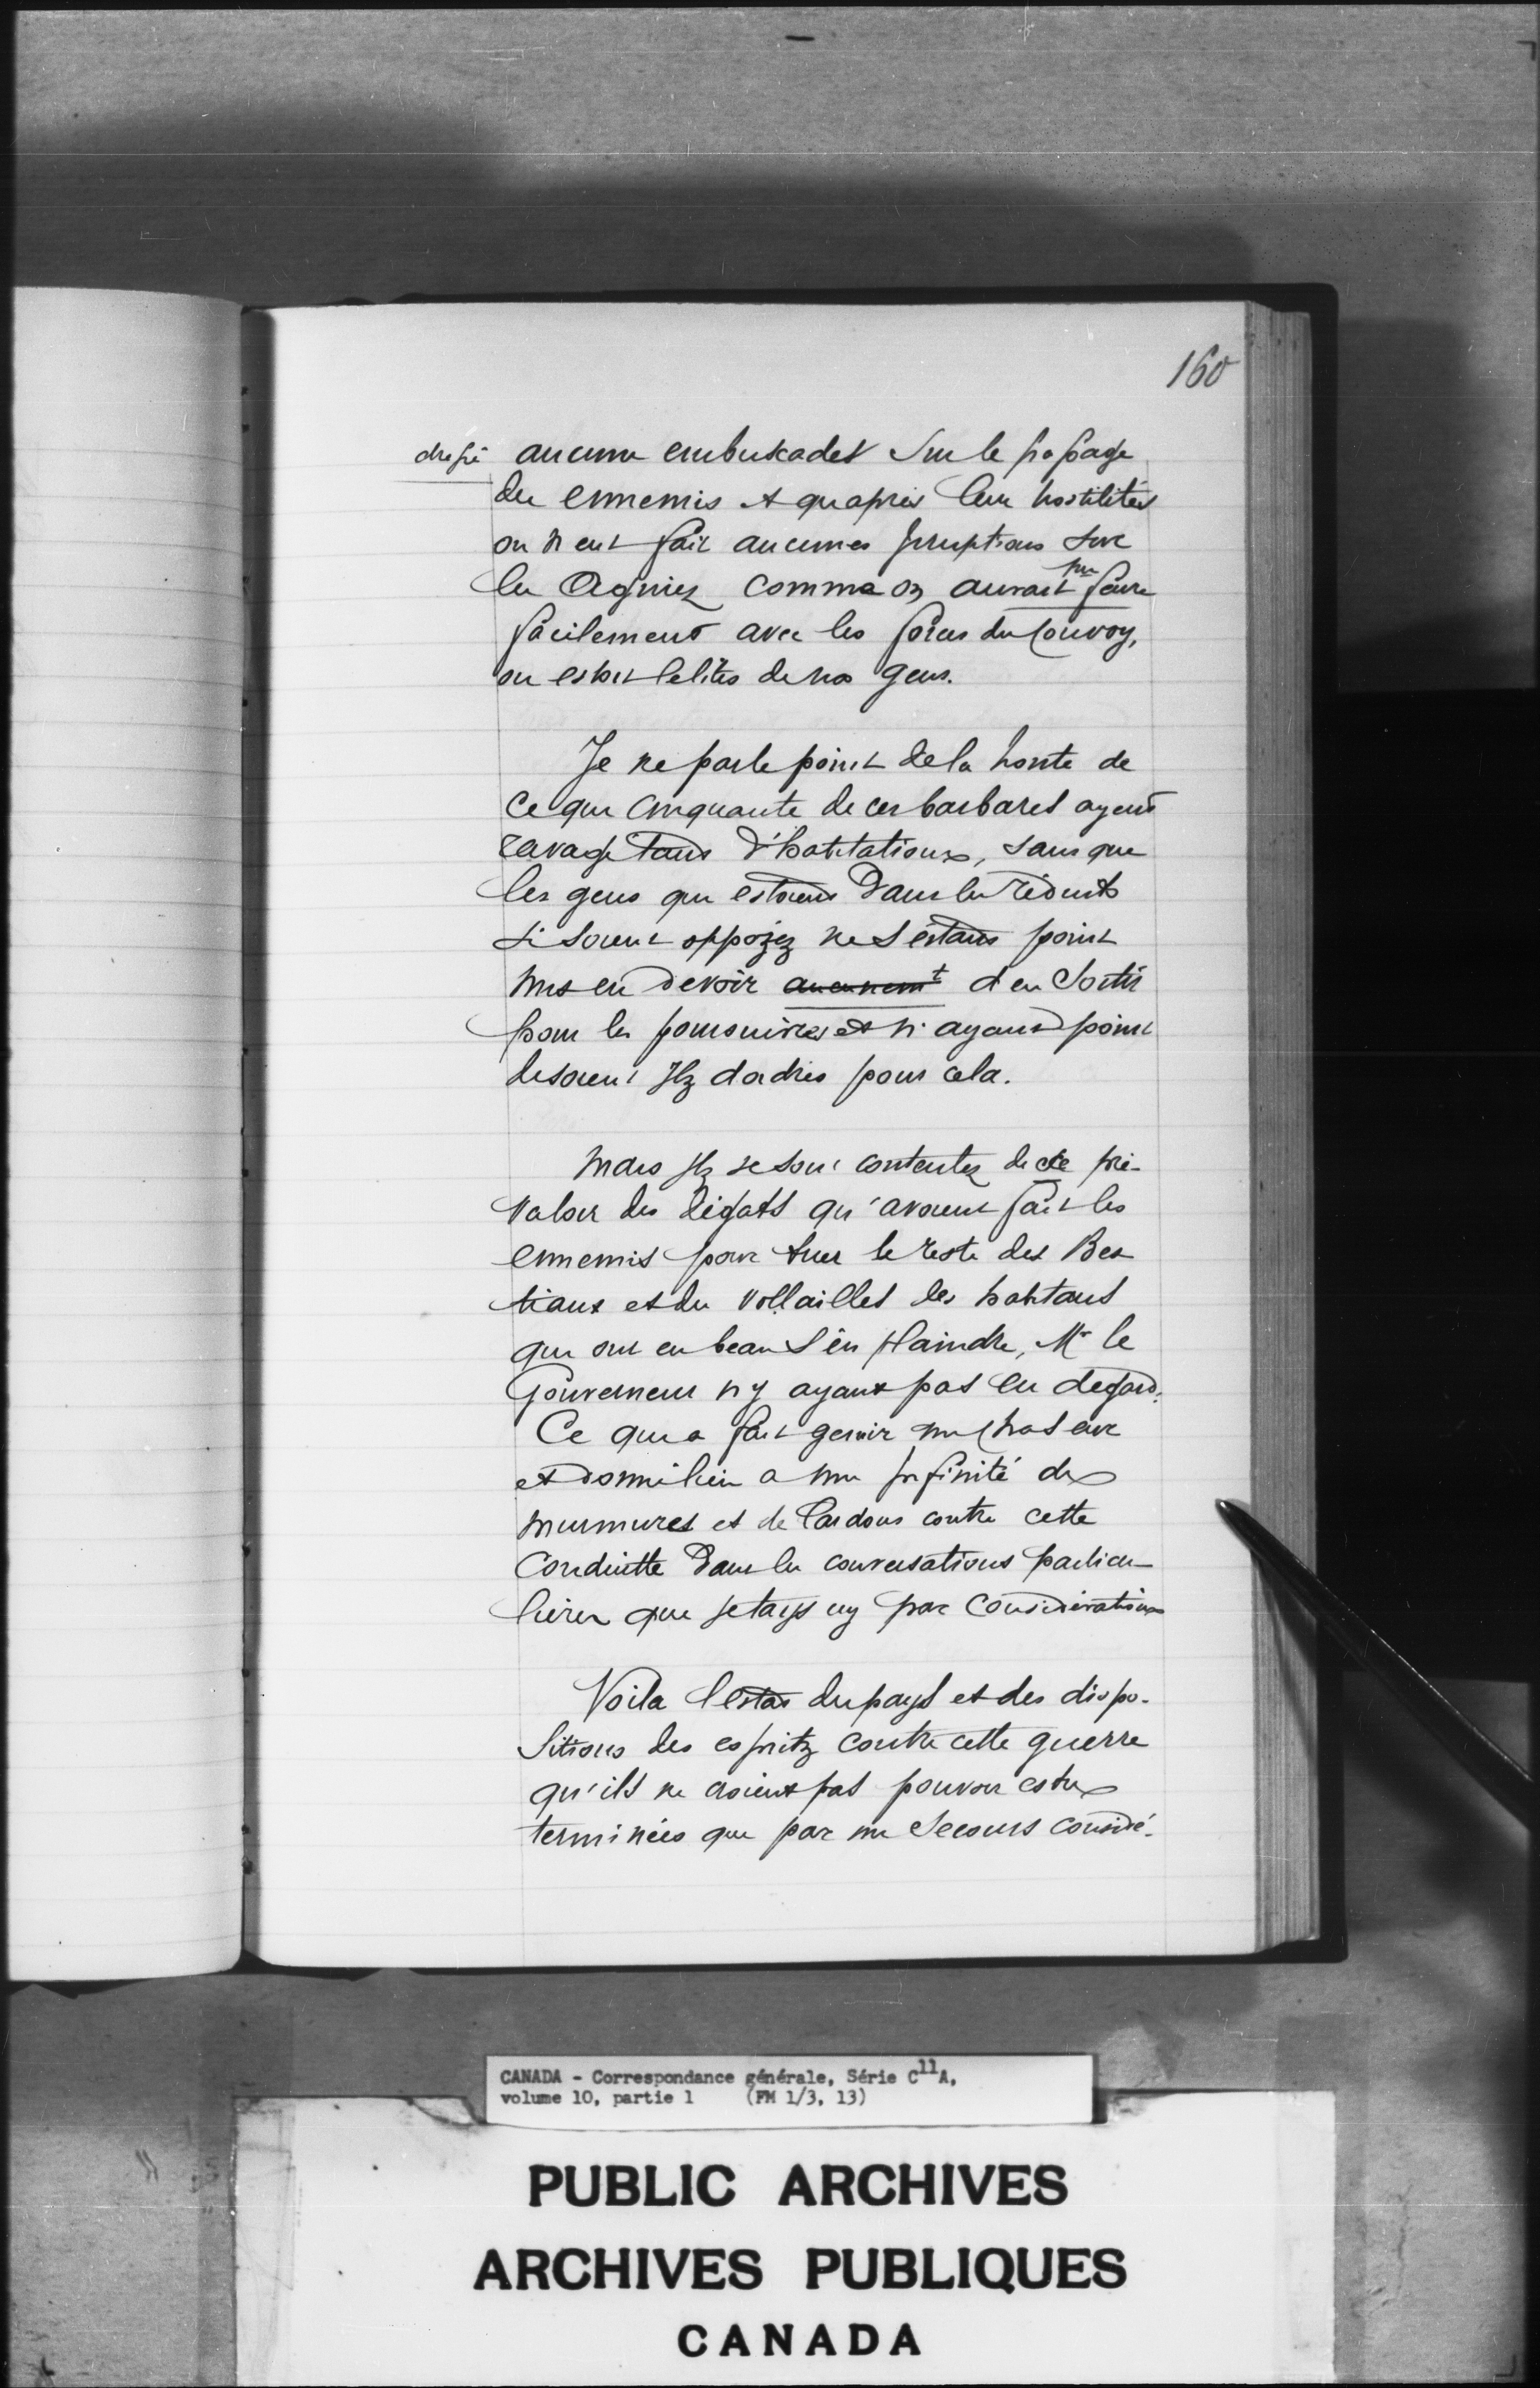 160
dressé aucunes embuscades sur le passage
des ennemis et quapres leurs hostilités
on n'eut fait aucunes Irruptions sur
les Agniez comme on aurait pu faire
facilement avec les forces du Convoy,
ou estoit lelites de nos gens.
Je ne parle point de la honte de
ce que Cinquante de ces barbares ayent
ravagé tant d'habitations, sans que
les gens qui estoient dans les réduits
s'i soient opposez ne s'estans point
mis en devoir aucunemt d'en sortir
pour les poursuivres et n'ayant point
disoient Ilz dordres pour cela.
Mais Ilz se sont contentez de se pré-
valoir des dégats qu'avoient fait les
ennemis pour tuer le reste des Bes
tiaux et des vollailles des habitans
qui ont eu beau s'en plaindre, Mr le
Gouverneur n'y ayant pas eu degard.
Ce qui a fait gemir un chascun
et donné lieu a une Infinité de
murmures et de lardons contre cette
Conduitte dans les conversations particu-
lières que je tays icy par considérations
Voila lestat du pays et des dispo-
sitions des espritz contre cette guerre
qu'ils ne croient pas pouvoir estre
terminées que par un secours considé-
CANADA - Correspondance générale, Série C11A,
volume 10, partie 1 (FM 1/3, 13)
PUBLIC ARCHIVES
ARCHIVES PUBLIQUES
CANADA